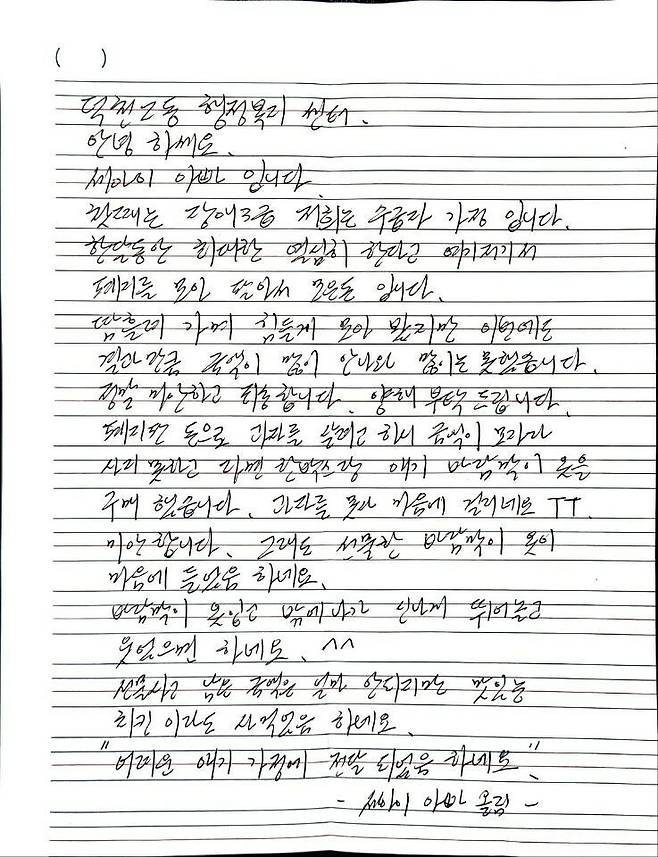 ( )
덕천2동 행정복지 센터.
안녕 하쎄요.
쎄아이 아빠 입니다.
첫째는 장애3급 저희는 수급자 가정 입니다.
한달동안 최대한 열심히 한다고 여기저기서
폐지를 모아 팔아서 모은돈 입니다.
땀흘려 가며 힘들게 모아 봤지만 이번에도
결과만큼 금액이 많이 안나와 많이는 못했습니다.
정말 미안하고 죄송합니다. 양해 부탁 드립니다.
폐지판 돈으로 과자를 살려고 하니 금액이 모자라
사지 못하고 라면 한박스랑 애기 바람막이 옷을
구매 했습니다. 과자를 못사 마음에 걸리네요 TT.
미안 합니다. 그래도 선물한 바람막이 옷이
마음에 들었음 하네요.
바람막이 옷입고 밖에나가 신나게 뛰어놀고
웃었으면 하네요. ^^
선물사고 남은 금액은 얼마 안되지만 맛있는
치킨 이라도 사먹었음 하네요.
"어려운 애기 가정에 전달 되었음 하네요".
- 쎄아이 아빠 올림 -